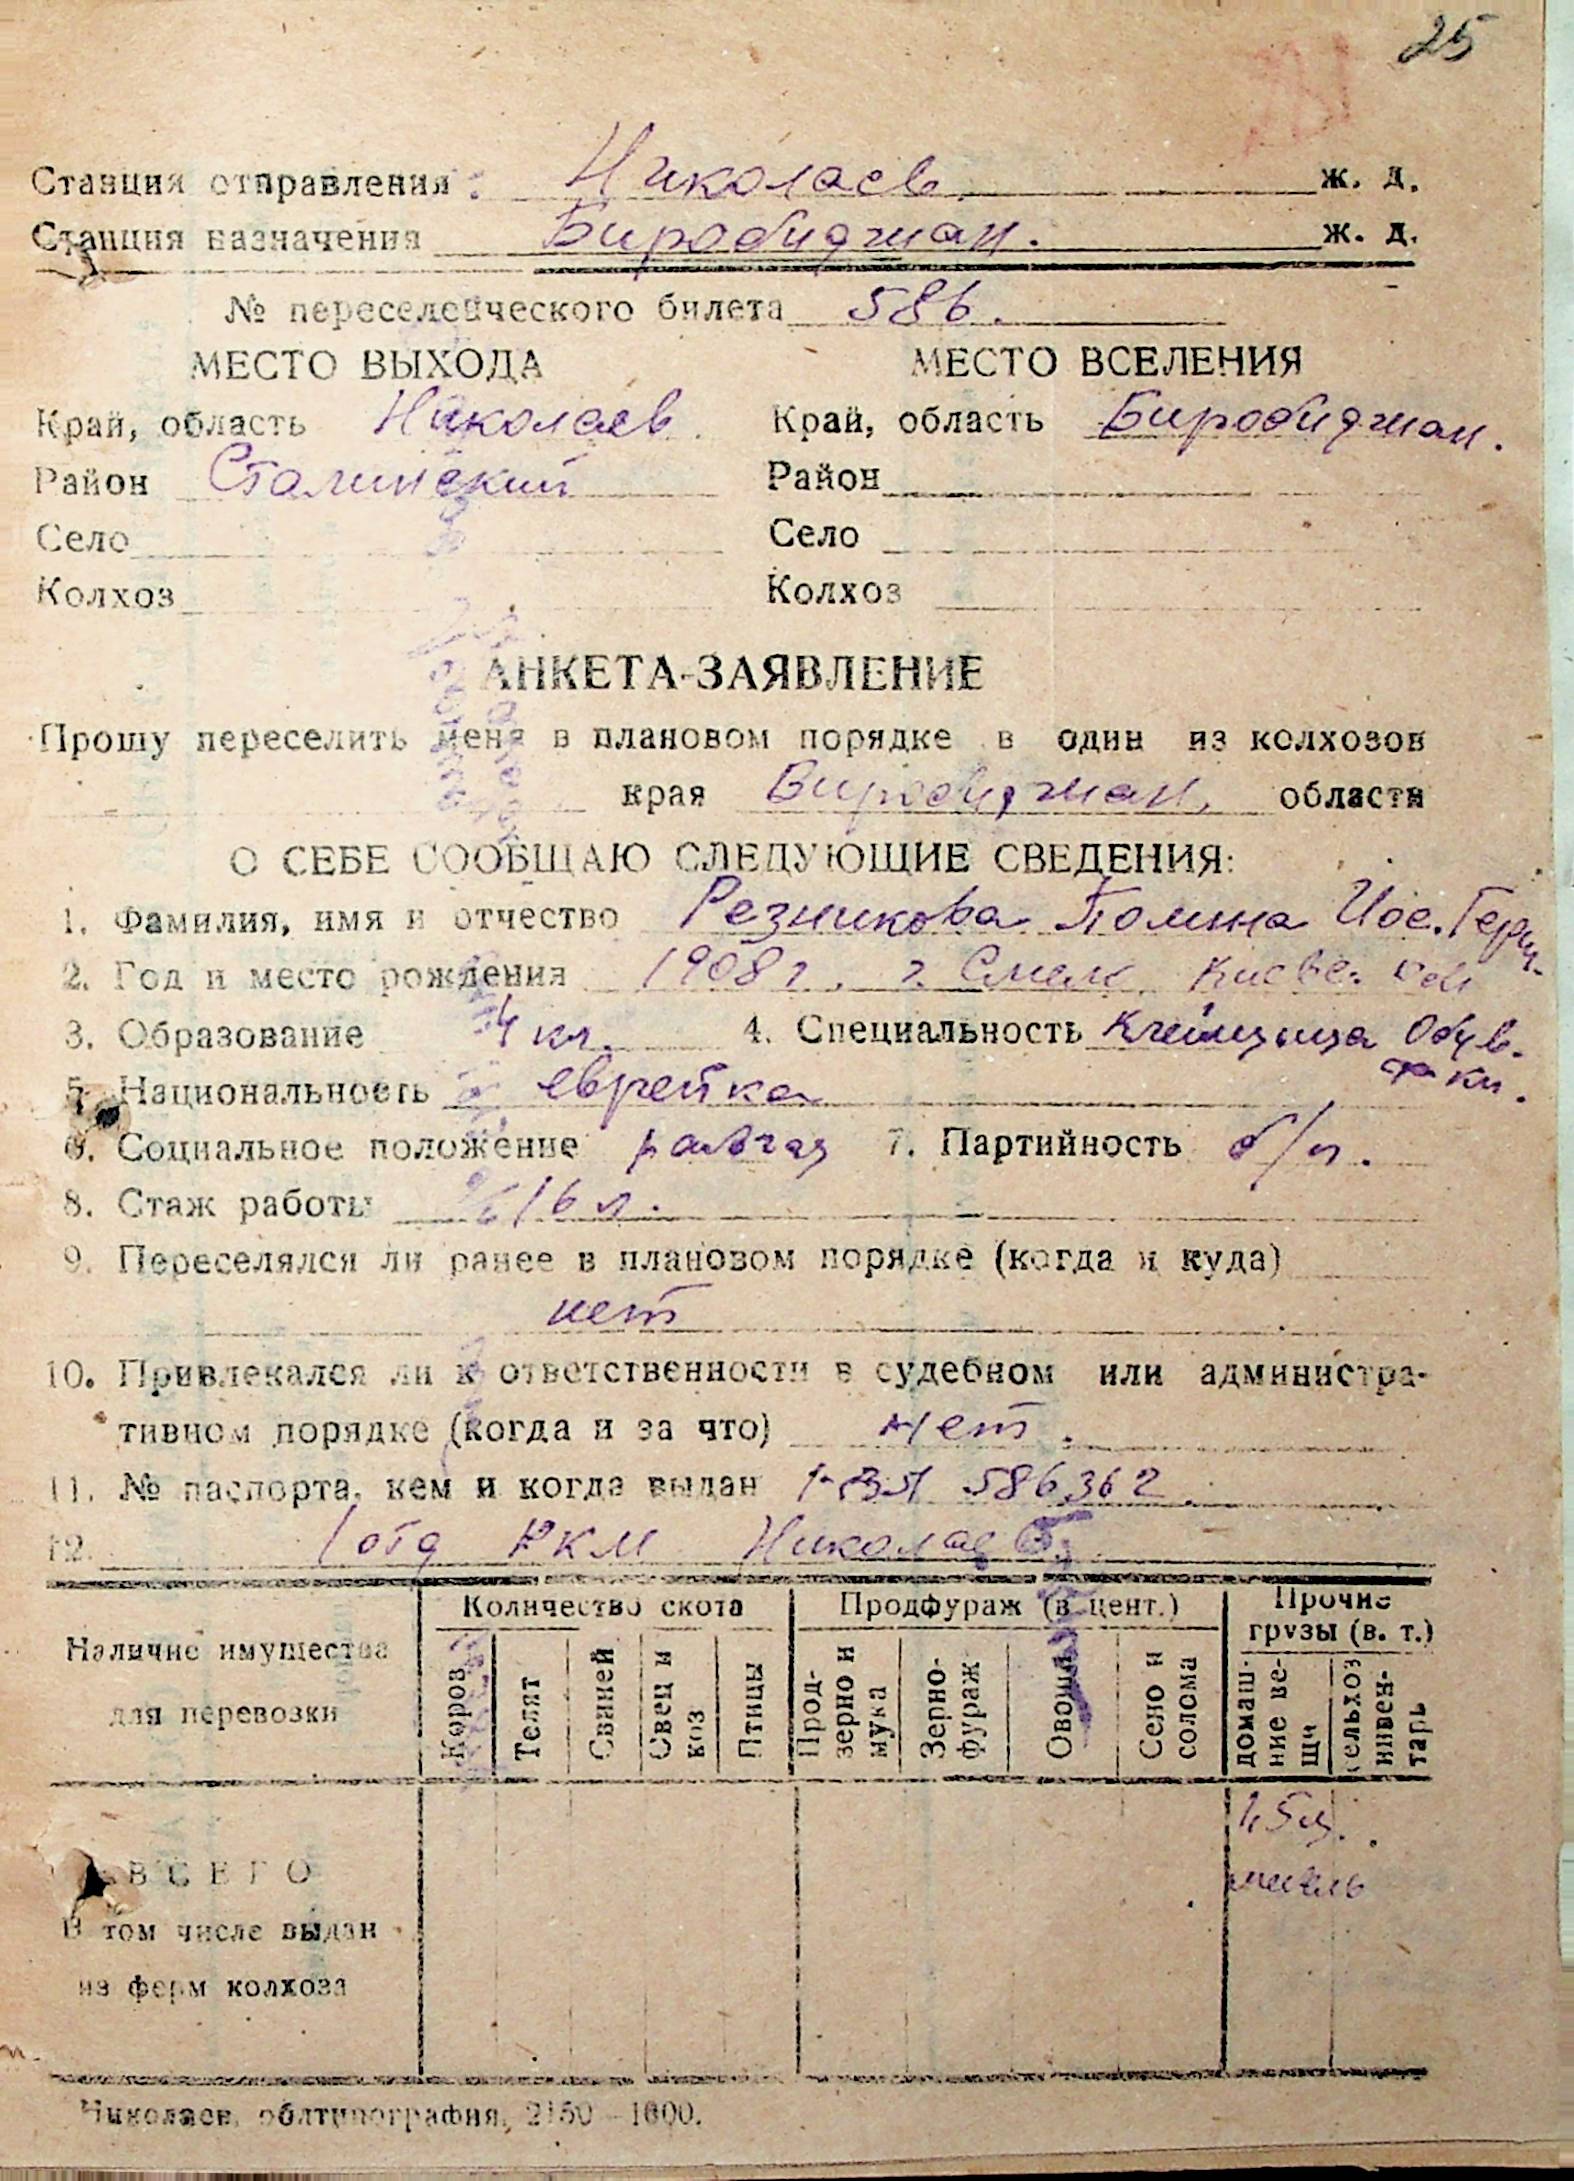 25
Станция отправления: Николаев ж. д.
Станция назначения Биробиджан. ж. д.
№ переселенческого билета 586.
МЕСТО ВЫХОДА МЕСТО ВСЕЛЕНИЯ
Край, область Николаев Край, область Биробиджан.
Район Сталинский Район
Село Село
Колхоз Колхоз
АНКЕТА-ЗАЯВЛЕНИЕ
Прошу переселить меня в плановом порядке в один из колхозов
края Биробиджан. области
О СЕБЕ СООБЩАЮ СЛЕДУЮЩИЕ СВЕДЕНИЯ:
1. Фамилия, имя и отчество Резникова Полина Иос. Герш.
2. Год и место рождения 1908 г. г. Смел. Киевс. обл
3. Образование 4 кл. 4. Специальность Клейщица Обув.
ф-ки.
5. Национальность еврейка
6. Социальное положение 7. Партийность б/п.
8. Стаж работы 16 л.
9. Переселялся ли ранее в плановом порядке (когда и куда)
нет
10. Привлекался ли к ответственности в судебном или администра-
тивном порядке (когда и за что) нет.
11. № паспорта, кем и когда выдан 586362
12. 1 отд РКМ
Наличие имущества для перевозки Количество скота Продфураж (в цент.) Прочие грузы (в. т.)
Коров Телят Свиней Овец и коз Птицы Прод-зерно и мука Зерно-фураж Овощи Сено и солома домаш-ние ве-щи сельхоз инвен-тарь
ВСЕГО
В том числе выдан
из ферм колхоза
Николаев, облтипография, 2150—1000.